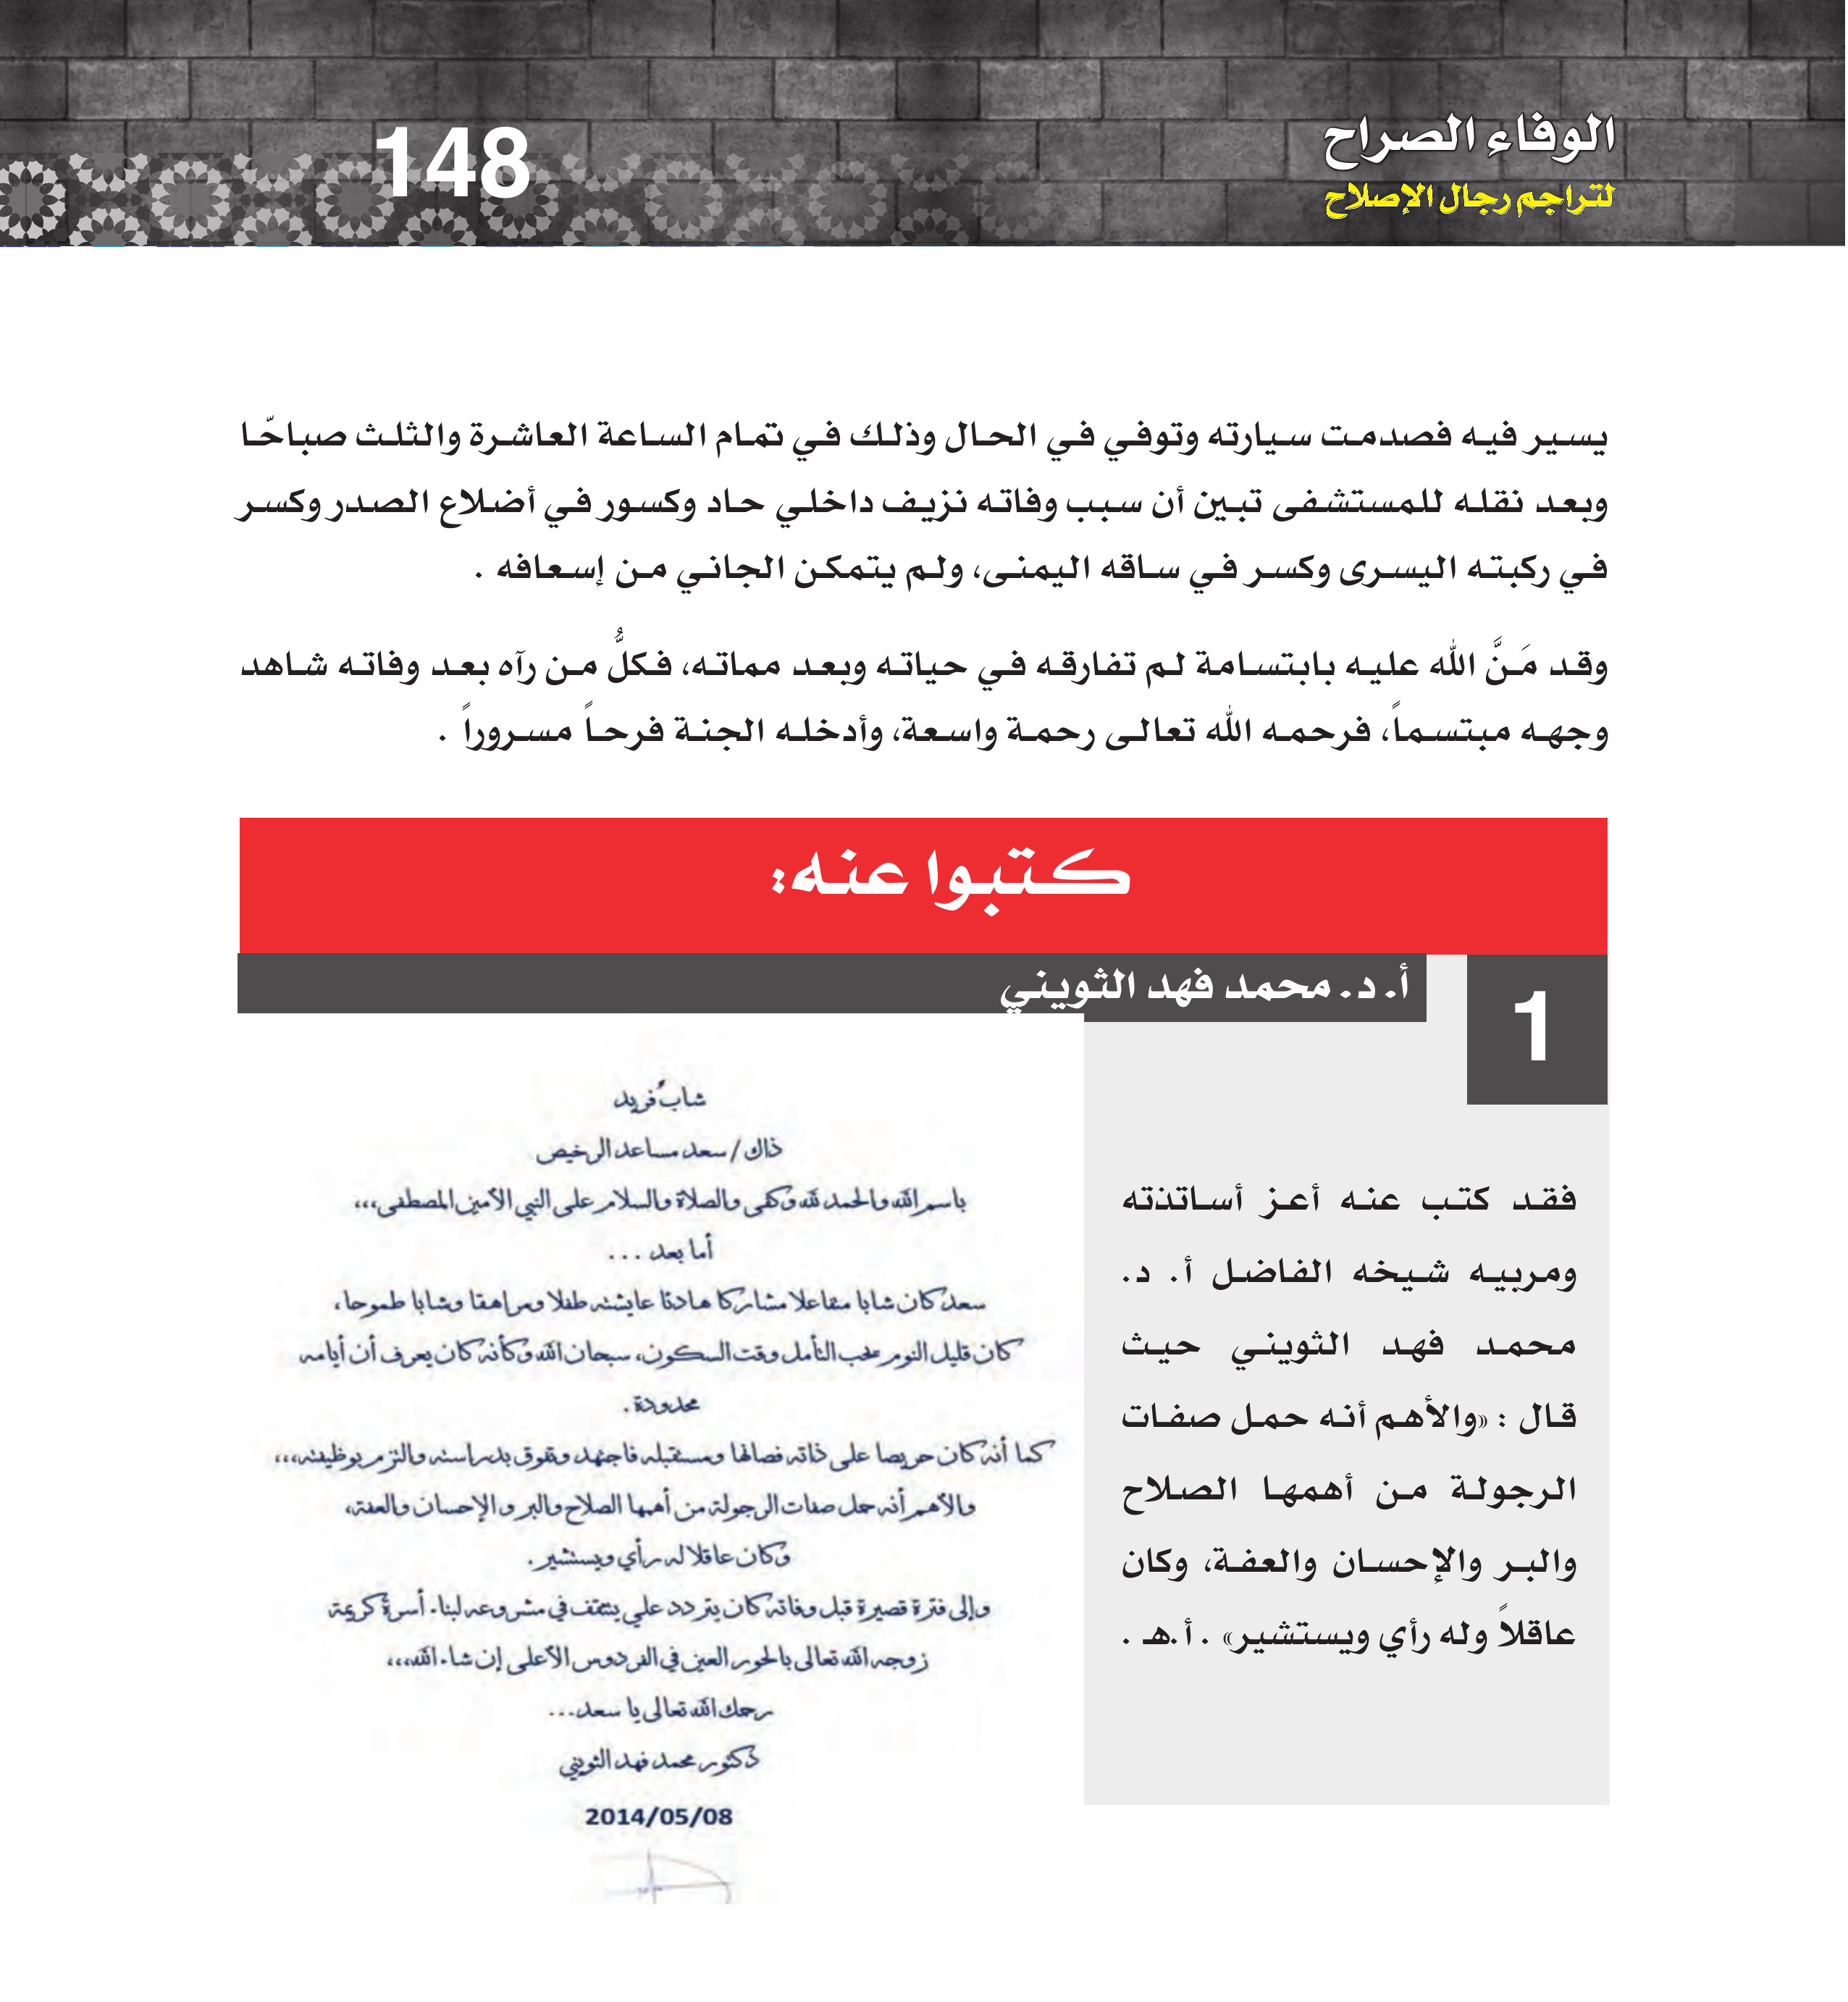 الوفاء الصراح
لتراجم رجال الإصلاح
148
يسير فيه فصدمت سيارته وتوفي في الحال وذلك في تمام الساعة العاشرة والثلث صباحًا
وبعد نقله للمستشفى تبين أن سبب وفاته نزيف داخلي حاد وكسور في أضلاع الصدر وكسر
في ركبته اليسرى وكسر في ساقه اليمنى، ولم يتمكن الجاني من إسعافه .
وقد مَنَّ الله عليه بابتسامة لم تفارقه في حياته وبعد مماته، فكلُّ من رآه بعد وفاته شاهد
وجهه مبتسماً، فرحمه الله تعالى رحمة واسعة، وأدخله الجنة فرحاً مسروراً .
كتبوا عنه:
1
أ. د. محمد فهد الثويني
فقد كتب عنه أعز أساتذته
ومربيه شيخه الفاضل أ. د.
محمد فهد الثويني حيث
قال : «والأهم أنه حمل صفات
الرجولة من أهمها الصلاح
والبر والإحسان والعفة، وكان
عاقلاً وله رأي ويستشير» . أ.هـ .
شابٌ فريد
ذاك / سعد مساعد الرخيص
باسم الله والحمد لله وكفى والصلاة والسلام على النبي الأمين المصطفى،،،
أما بعد ...
سعد كان شابا متفاعلا مشاركا هادئا عايشته طفلا ومراهقا وشابا طموحا،
كان قليل النوم محب التأمل وقت السكون، سبحان الله وكأنه كان يعرف أن أيامه
محدودة .
كما أنه كان حريصا على ذاته فصانها ومستقبله فاجتهد وتفوق بدراسته والتزم بوظيفته،،،
والأهم أنه حمل صفات الرجولة من أهمها الصلاح والبر والإحسان والعفة،
وكان عاقلا له رأي ويستشير .
وإلى فترة قصيرة قبل وفاته كان يتردد علي يتثقف في مشروعه لبناء أسرة كريمة
زوجه الله تعالى بالحور العين في الفردوس الأعلى إن شاء الله،،،
رحمك الله تعالى يا سعد...
دكتور محمد فهد الثويني
2014/05/08